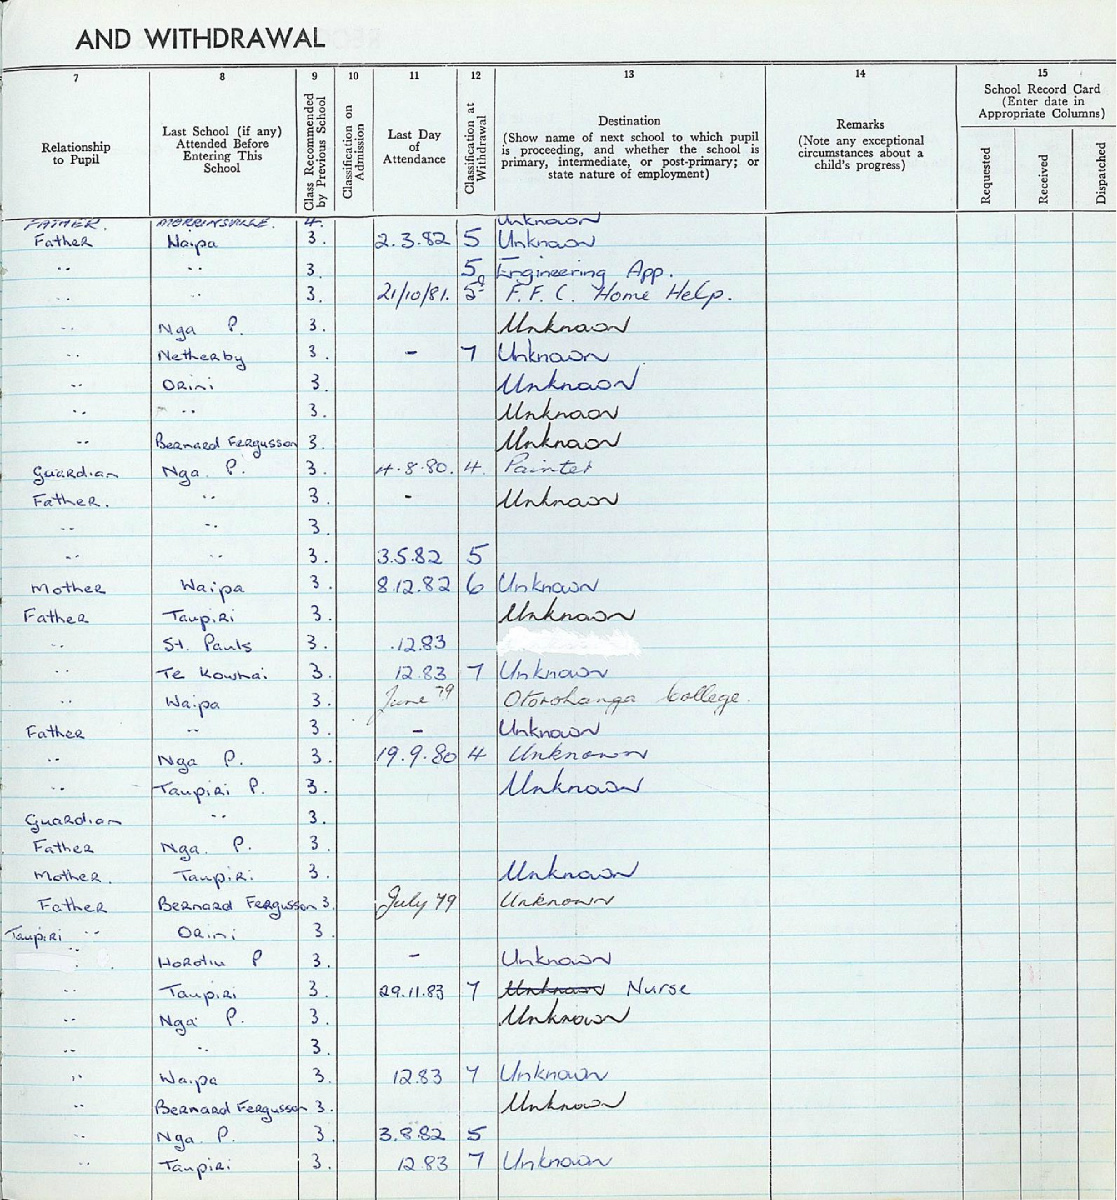 AND WITHDRAWAL
7 8 9 10 11 12 13 14 15
Relationship to Pupil
Last School (if any) Attended Before Entering This School
Class Recommended by Previous School
Classification on Admission
Last Day of Attendance
Classification at Withdrawal
Destination
(Show name of next school to which pupil is proceeding, and whether the school is primary, intermediate, or post-primary; or state nature of employment)
Remarks
(Note any exceptional circumstances about a child's progress)
School Record Card
(Enter date in Appropriate Columns)
Requested
Received
Dispatched
FATHER. MORRINSVILLE. 4. Unknown
Father Waipa 3. 2.3.82 5 Unknown
" " 3. 5 Engineering App.
" " 3. 21/10/81. 5 F.F.C. Home Help.
" Nga P. 3. Unknown
" Netherby 3. - 7 Unknown
" Orini 3. Unknown
" " 3. Unknown
" Bernard Fergusson 3. Unknown
Guardian Nga P. 3. 4.8.80. 4. Painter
Father. " 3. - Unknown
" " 3.
" " 3. 3.5.82 5
Mother Waipa 3. 8.12.82 6 Unknown
Father Taupiri 3. Unknown
" St. Pauls 3. .12.83
" Te Kowhai 3. 12.83 7 Unknown
" Waipa 3. June 79 Otorohanga College.
Father " 3. - Unknown
" Nga P. 3. 19.9.80 4 Unknown
" Taupiri P. 3. Unknown
Guardian " 3.
Father Nga P. 3.
Mother. Taupiri 3. Unknown
Father Bernard Fergusson 3. July 79 Unknown
Taupiri " Orini 3.
" Horotiu P 3. - Unknown
" Taupiri 3. 29.11.83 7 Unknown Nurse
" Nga P. 3. Unknown
" " 3.
" Waipa 3. 12.83 7 Unknown
" Bernard Fergusson 3. Unknown
" Nga P. 3. 3.8.82 5
" Taupiri 3. 12.83 7 Unknown